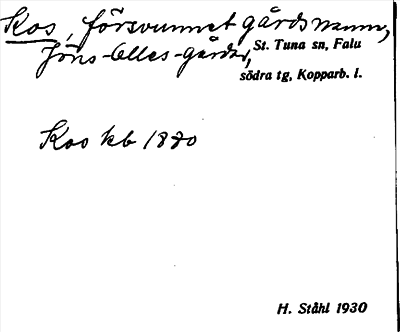 Kos, försvunnet gårdsnamn,
Jöns-Olles-gården,
St. Tuna sn, Falu
södra tg, Kopparb. l.
Kos kb 1880
H. Ståhl 1930